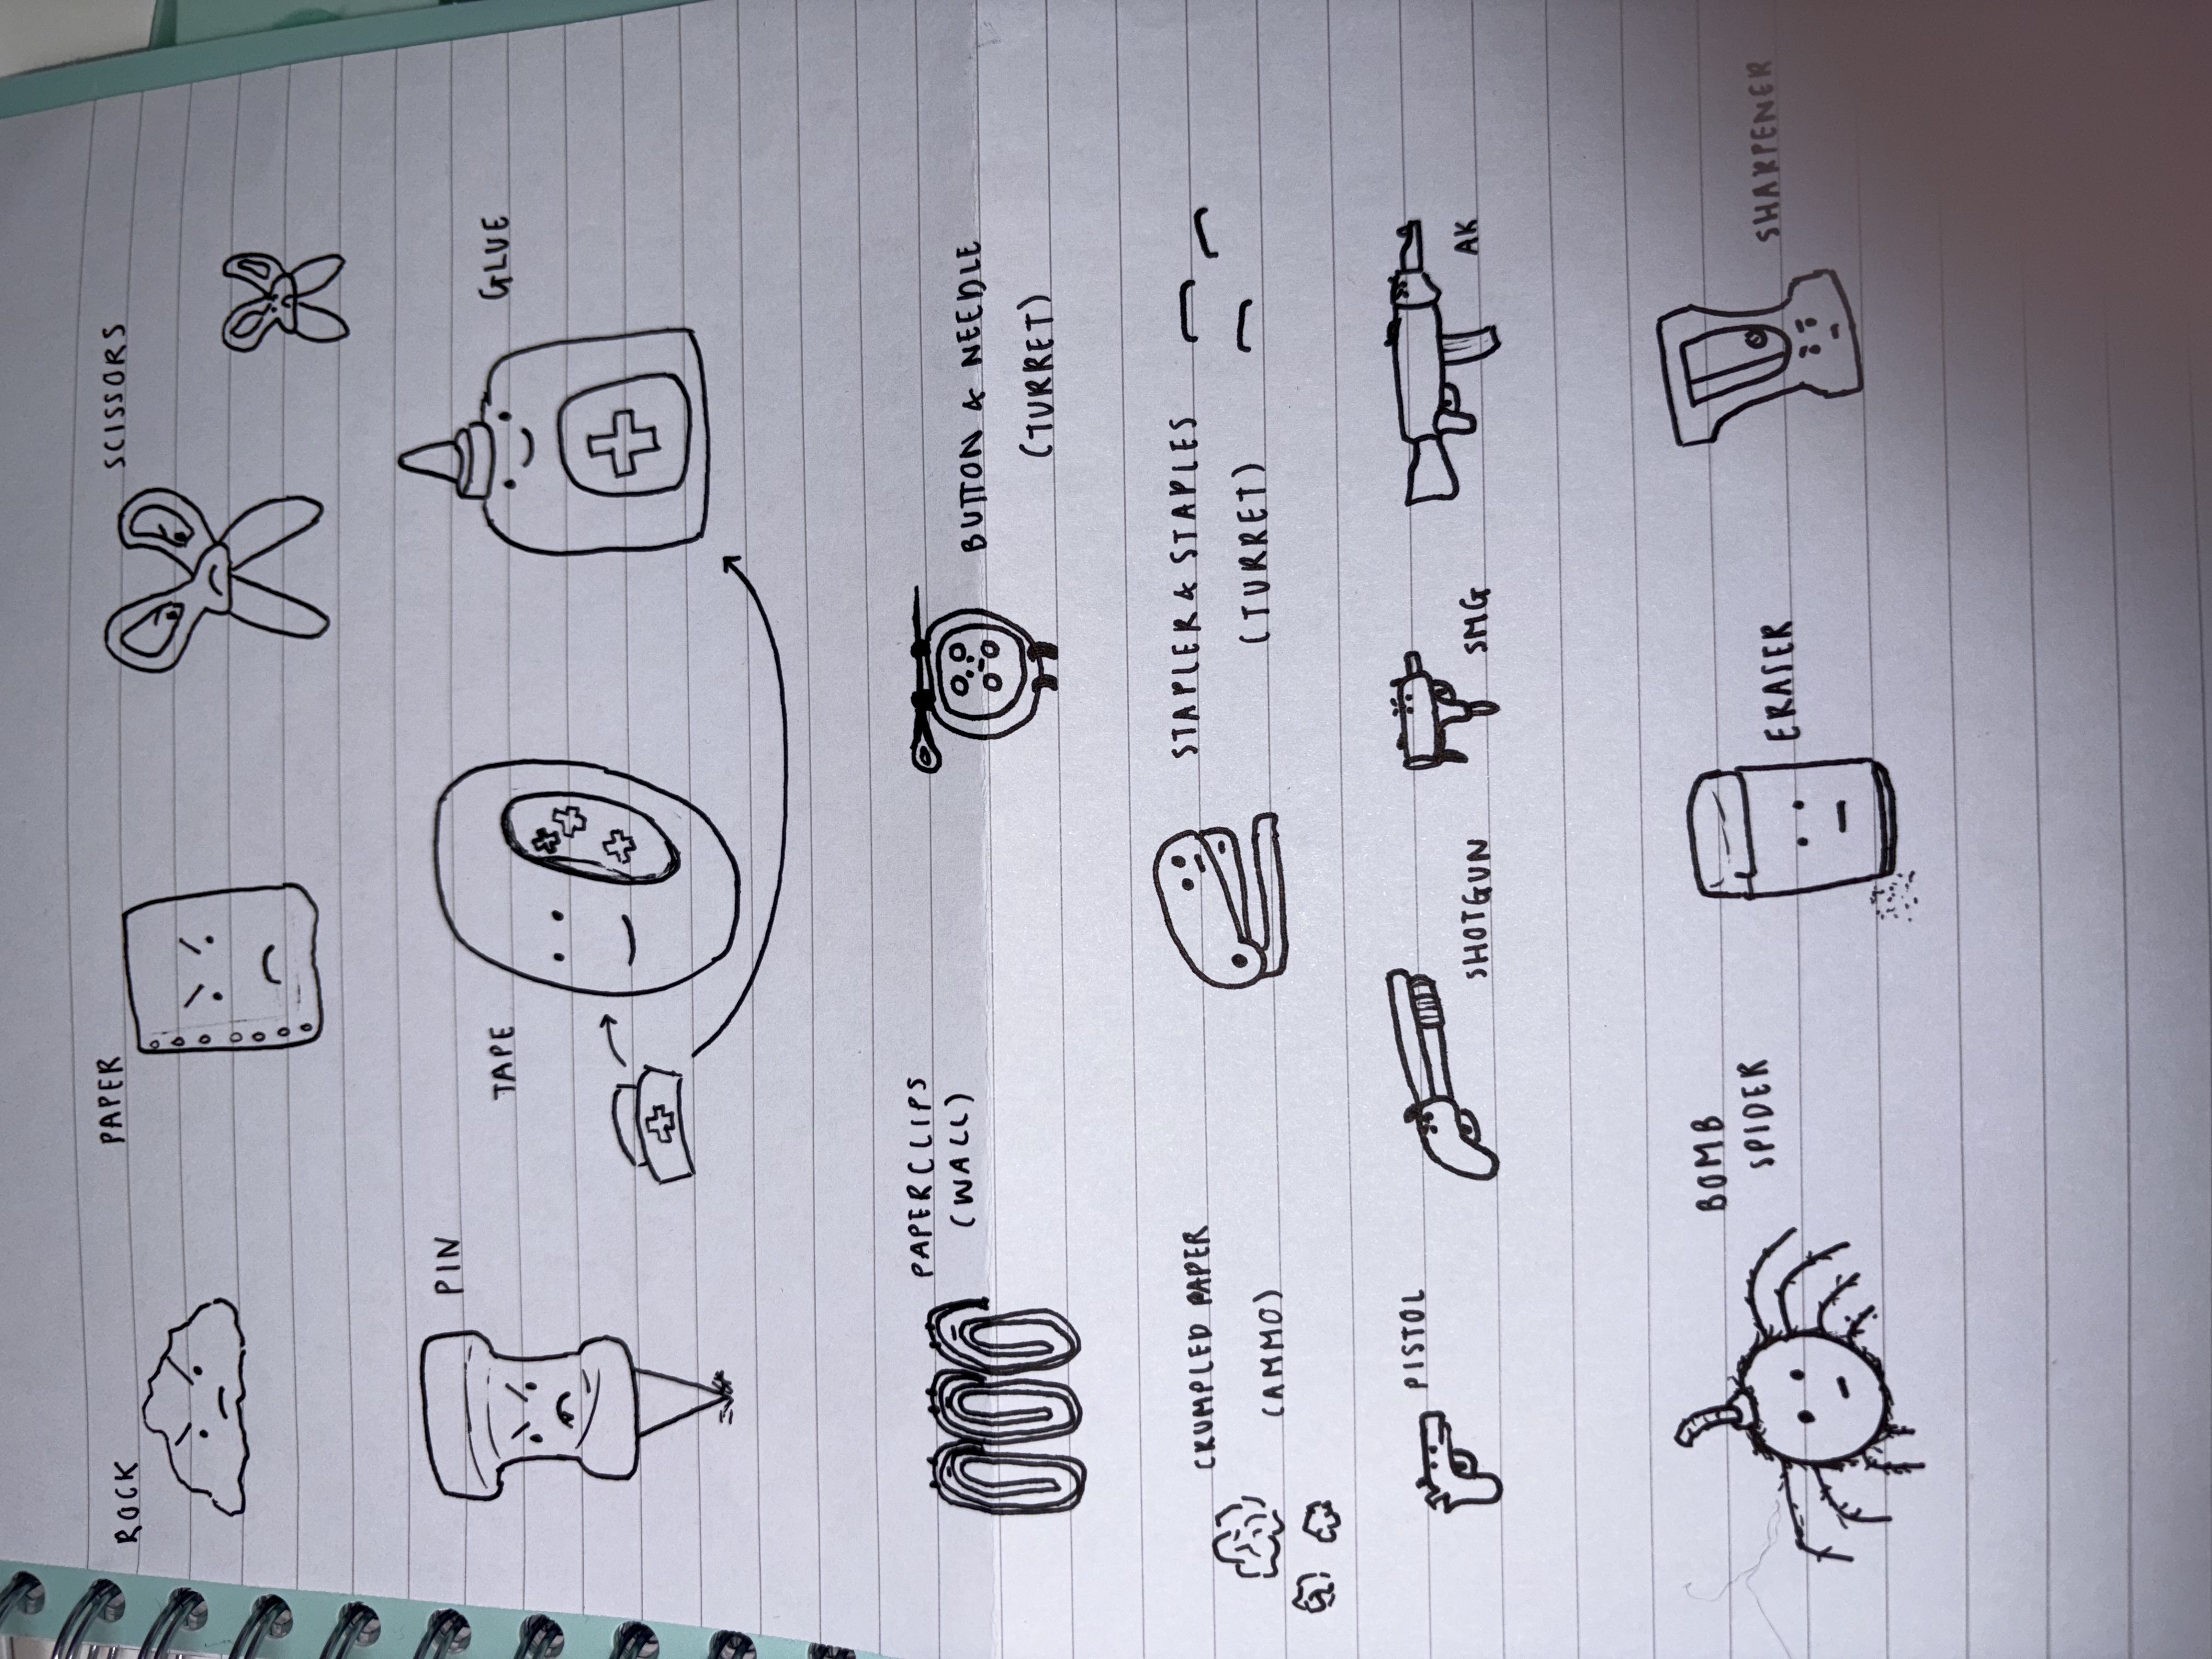 ROCK
PAPER
SCISSORS
PIN
TAPE
GLUE
PAPERCLIPS
(WALL)
BUTTON & NEEDLE
(TURRET)
CRUMPLED PAPER
(AMMO)
STAPLER & STAPLES
(TURRET)
PISTOL
SHOTGUN
SMG
AK
BOMB
SPIDER
ERASER
SHARPENER